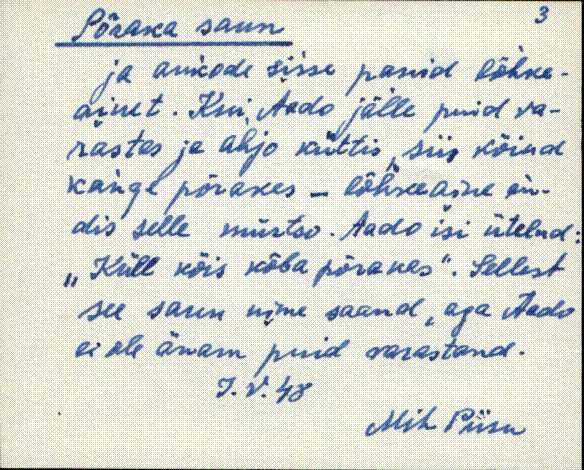 3
Põraka saun
ja aukode sisse panid lõhke-
ainet. Kui, Aado jälle puid va-
rastas ja ahjo küttis, siis kõind
kange põrakas – lõhkeaine an-
dis selle mürtso. Aado isi ütelnd:
„Küll kõis kõba põrakas". Sellest
see saun nime saand, aga Aado
ei ole änam puid varastand.
J. V. 48
Mih. Piisu